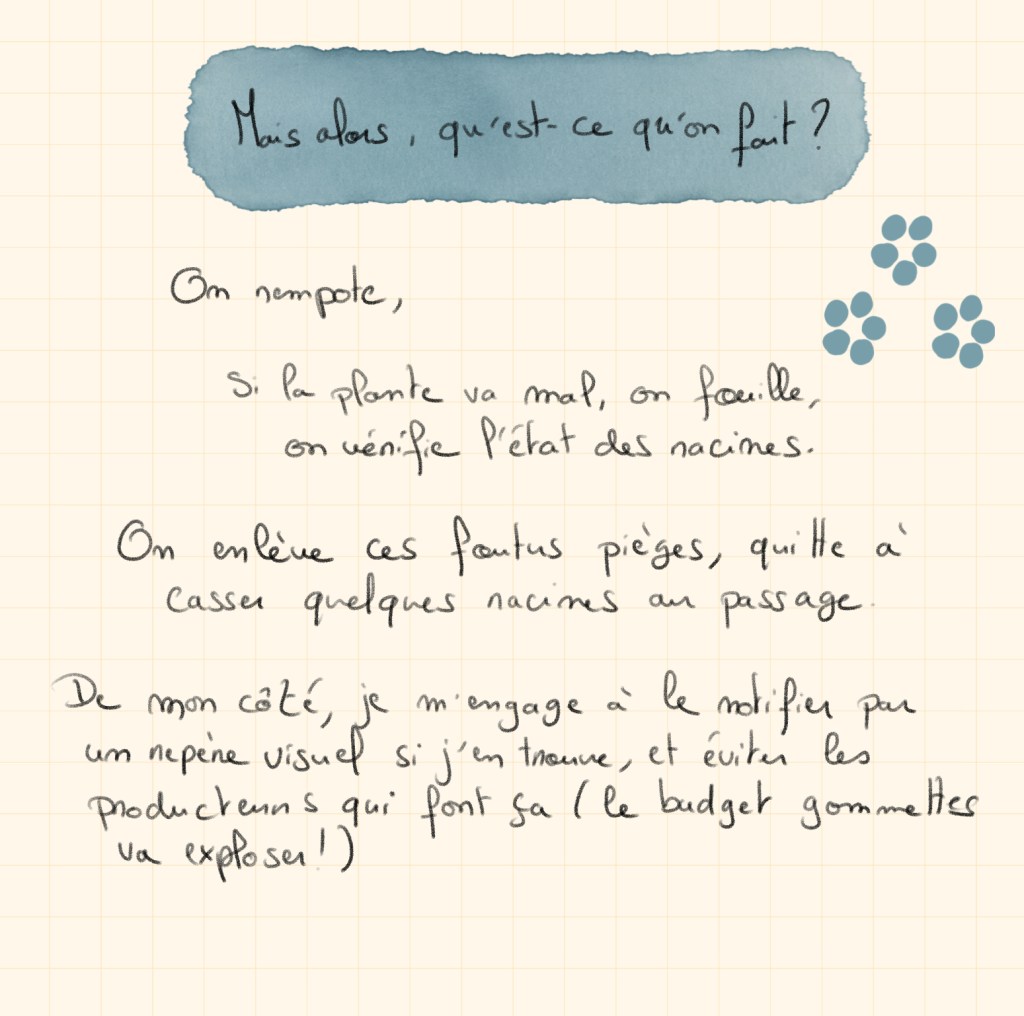 Mais alors, qu'est-ce qu'on fait ?
On rempote,
Si la plante va mal, on fouille,
on vérifie l'état des racines.
On enlève ces foutus pièges, quitte à
casser quelques racines au passage.
De mon côté, je m'engage à le notifier par
un repère visuel si j'en trouve, et éviter les
producteurs qui font ça (le budget gommettes
va exploser!)